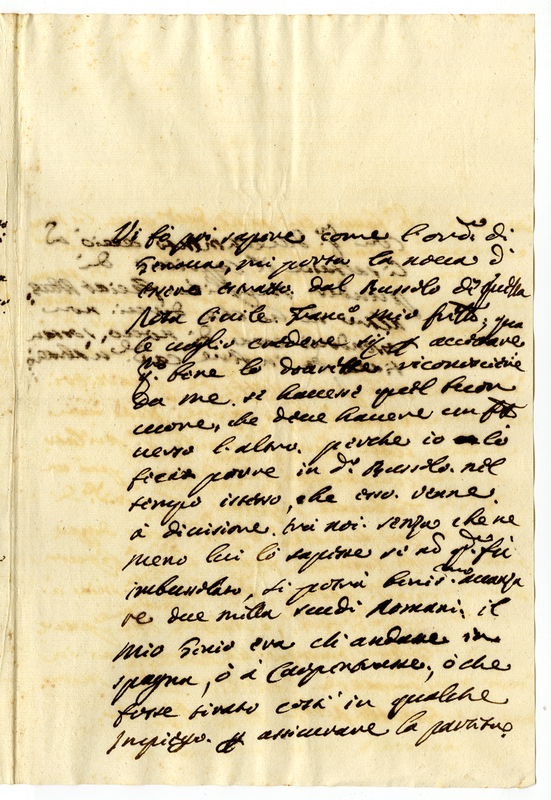 Vi fò poi sapere come l'ord.º di
Genova, mi porta la nova d'
essere estratto dal Bussolo di questa
Rota Civile Franc.º mio frtto; qua
le voglio credere si accettare
bene lo dovrebbe riconoscere
da me. si havessi quel buon
cuore, che deve havere un
verso l'altro. perche io lo
feci porre in d.º Bussolo. nel
tempo istesso, che esso venne
à divisione. trà noi. senza che ne
meno lui lo sapesse se nò q.do fù
imbussolato, si potrà benis.mo avanza
re due milla scudi Romani; il
mio Genio era di andare in
spagna, ò à Carpentrasse; ò che
fosse tirato costì in qualche
impiego. assicurare la partita